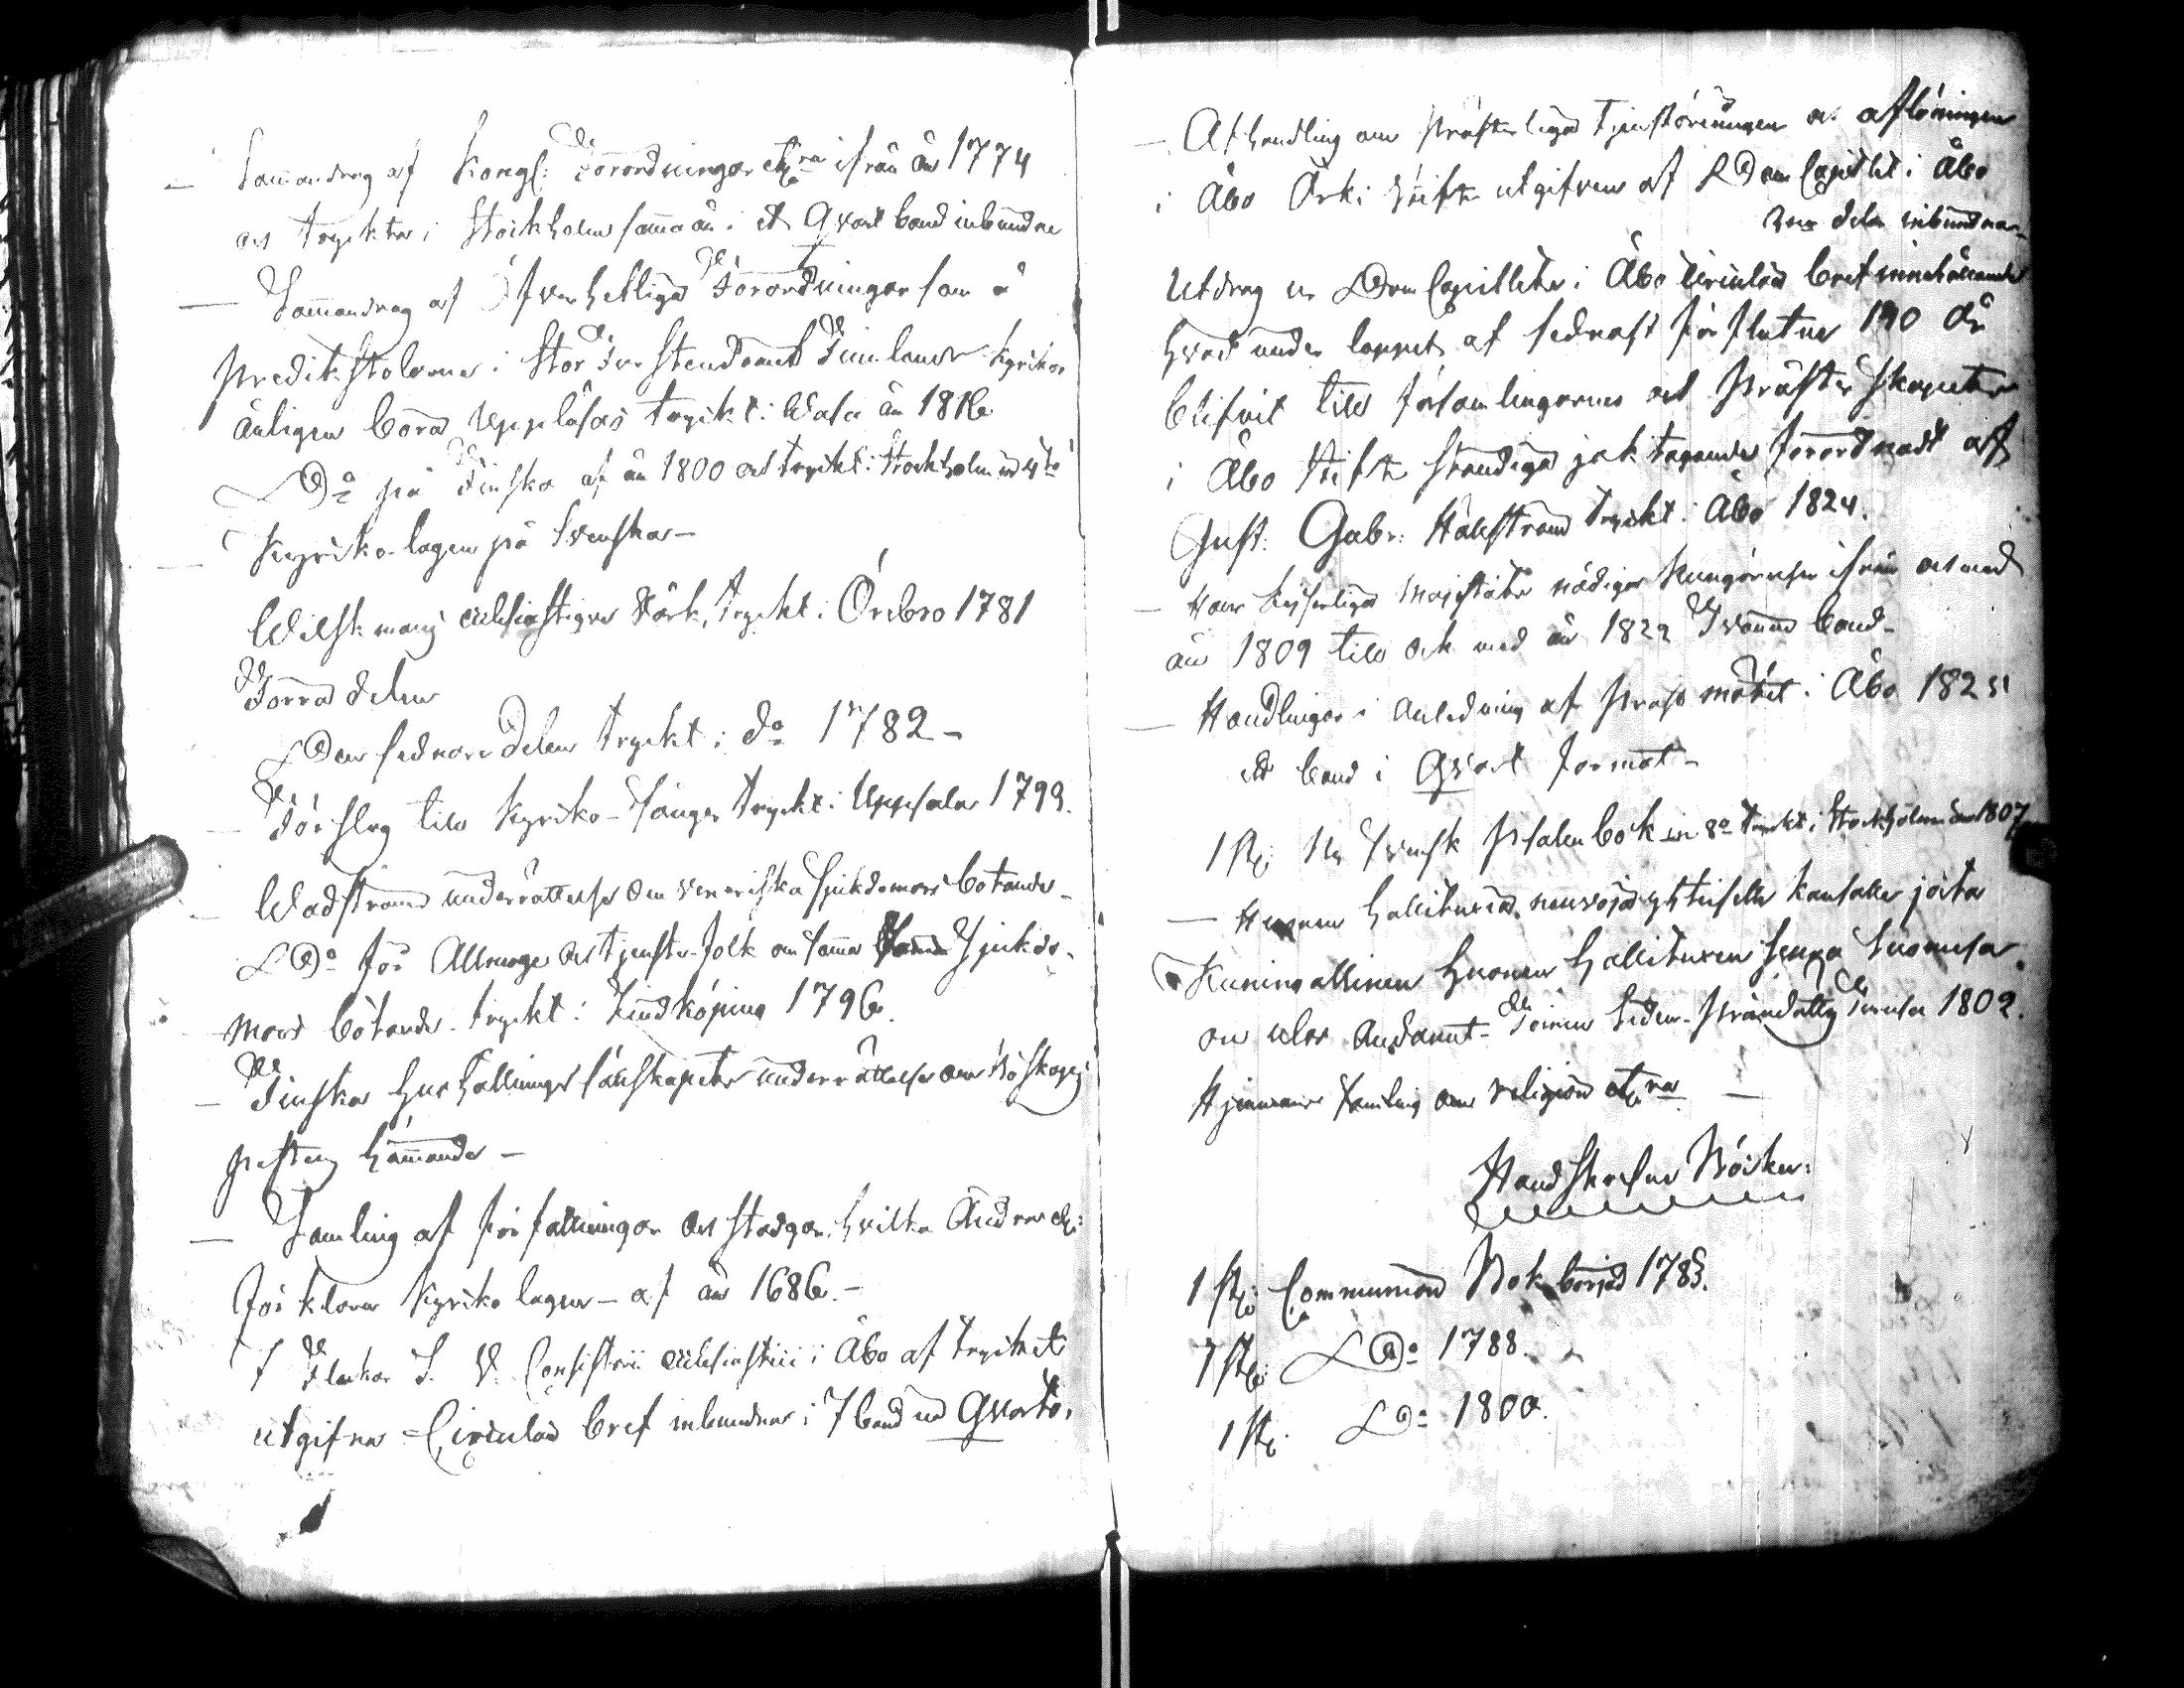 — Samandrag af Kongl: Förordningar etc:ra ifrån år 1774
och tryckta i Stockholm samma år i ett Qvart band inbundne
— Samandrag af Öfverhetliga Förordningar som å
Predikstolarne i Stor Furstendömet Finlands Kyrkor
årligen böra uppläsas tryckt i Wasa år 1816
Do på Finska af år 1800 och tryckt i Stockholm in 4to
— Kyrko-lagen på Svenska —
Wilskmans Ecclesiastique Värk, tryckt i Örebro 1781
Förra delen
Den sednare Delen tryckt i do 1782 —
— Förslag till Kyrko-sånger tryckt i Uppsala 1799.
— Wadströms underrättelse om veneriska sjukdomars botande —
Do för Allmoge och tjenste-folk om samma Sjukdo-
mars botande. tryckt i Lindköping 1796.
— Finska Hushållnings sällskapets underrättelse om Boskaps
pestens hämmande —
— Samling af författningar och stadgar, hvilka Ändra och
förklara Kyrko lagen — af år 1686. —
7 Flockar S. V. Consistorii Ecclesiastici i Åbo af trycket
utgifna Circulär bref inbundna i 7 band in Qvarto.
— Afhandling om Prästerliga Tjenstgöringen och aflöningen
i Åbo Ärki Stift utgifven af Dom Capitlet i Åbo
delar inbundna —
Utdrag ur Dom Capitlets i Åbo Circulär bref innehållande
hvad under loppet af sednast förflutne 190 år
blifvit till församlingarnes och Prästerskapets
i Åbo Stift ständiga jakttagande förordnadt af
Gust: Gabr: Hällström tryckt i Åbo 1824.
— Hans Kejserliga Majestäts nådiga Kungörelser ifrån och med
år 1809 till och med år 1822 Tvänne band —
— Handlingar i anledning af Prest mötet i Åbo 1825
ett band i Qvart format —
1 St: Ny Svensk Psalm bok in 8o tryckt i Stockholm år 1807
— Huonen hallituxesta, neuvoja yhteiselle kansalle joita
Kuningallinen Huonen hallituxen Seura Suomesa
on ulos Andanut — Toinen Präntätty Turusa 1802.
samling om religion etc:ra —
Handskrefne Böcker:
1 St: Communion Bok börjad 1783.
1 St: Do 1788.
1 St: Do 1800.